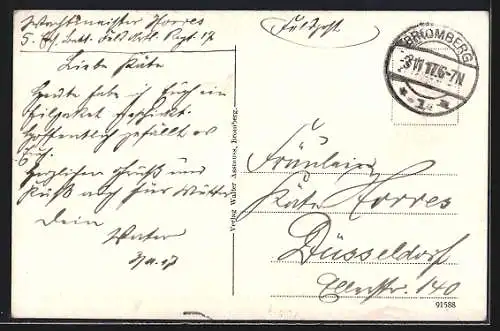 Wachtmeister Horres
5. Ers. Batt. Feld Artl. Regt. 17
Feldpost
BROMBERG
3.11.17.6-7N
* 1 *
Liebe Käte
Heute habe ich Euch ein
geschickt.
Hoffentlich gefällt es
Euch.
Herzlichen Gruß und
Kuß auch für Mutter
Dein
Vater
3/11.17
Verlag Walter Assmuss, Bromberg.
Fräulein
Käte Horres
Düsseldorf
140
91588